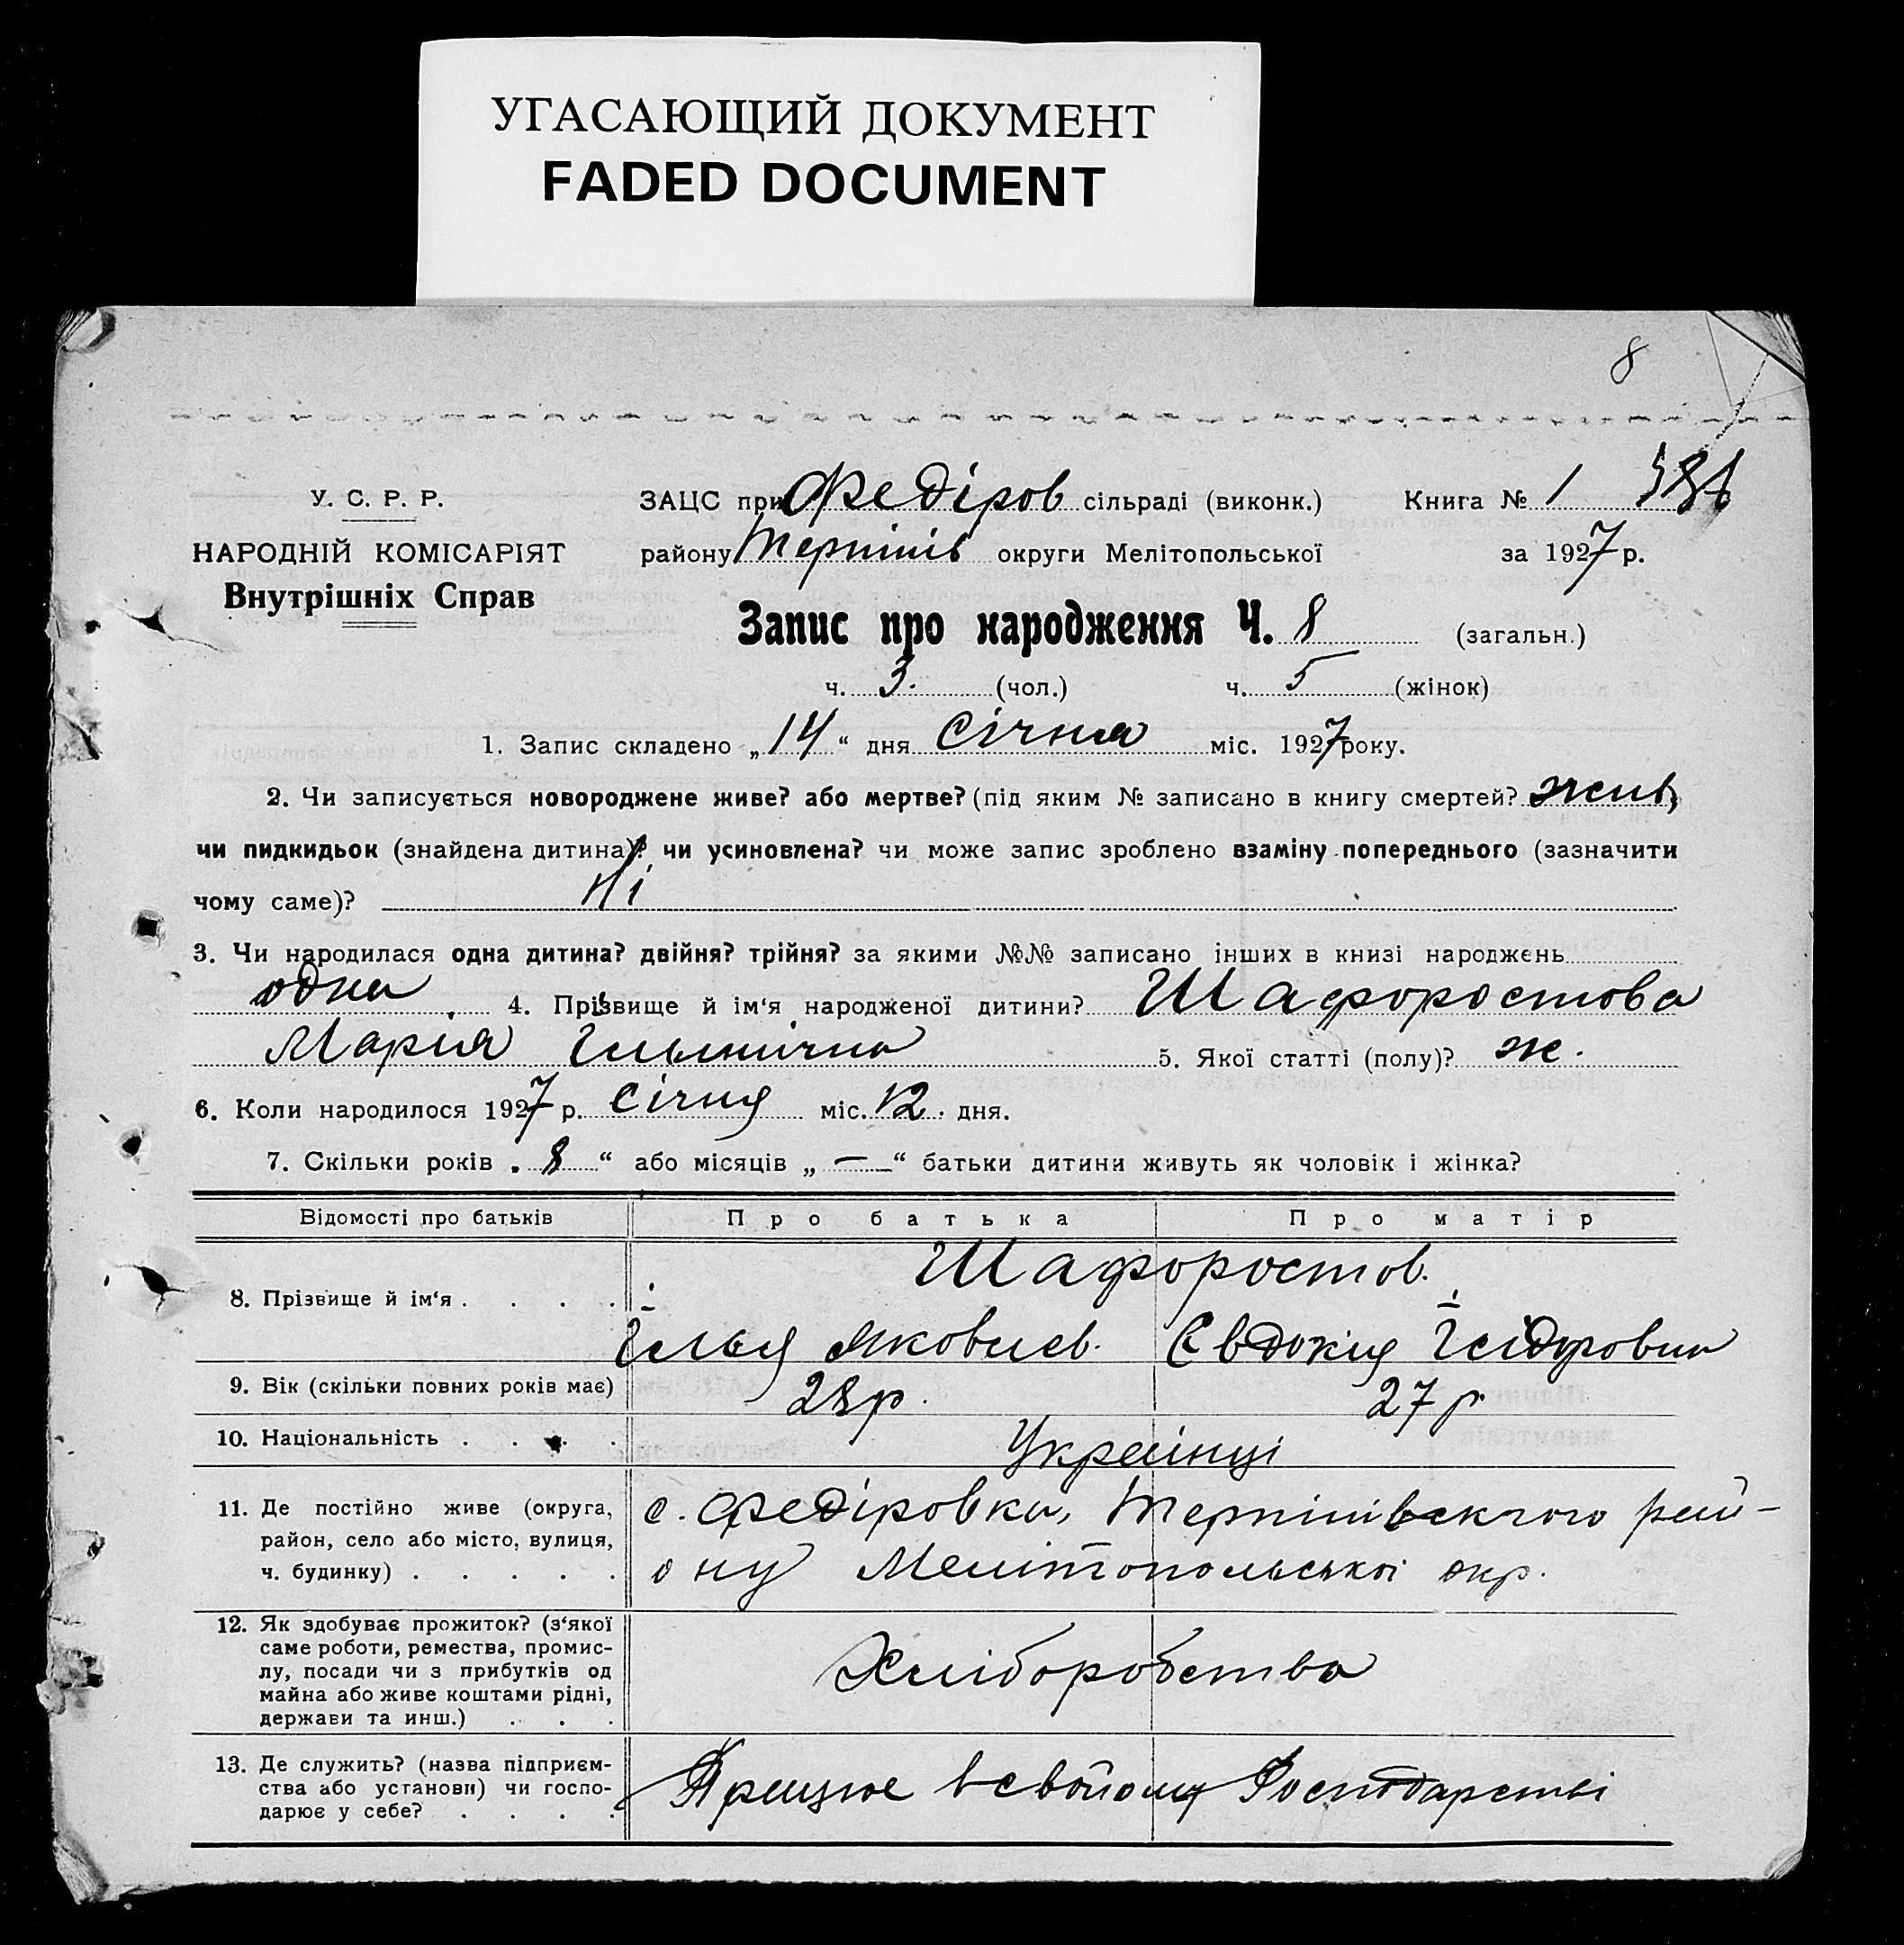 УГАСАЮЩИЙ ДОКУМЕНТ
FADED DOCUMENT
8
У. С. Р. Р.
НАРОДНІЙ КОМІСАРІЯТ
Внутрішніх Справ
ЗАЦС при Федіров сільраді (виконк.) Книга № 1
району Терпінів округи Мелітопольської за 1927 р.
Запис про народження Ч. 8 (загальн.)
ч. 3. (чол.) ч. 5 (жінок)
1. Запис складено „14“ дня Січня міс. 1927 року.
2. Чи записується новороджене живе? або мертве? (під яким № записано в книгу смертей?
чи пидкидьок (знайдена дитина)? чи усиновлена? чи може запис зроблено взаміну попереднього (зазначити
чому саме)? Ні
3. Чи народилася одна дитина? двійня? трійня? за якими №№ записано інших в книзі народжень
одна 4. Прізвище й ім‘я народженої дитини? Шафоростова
Марія Ільїнична 5. Якої статті (полу)? ж.
6. Коли народилося 1927 р. Січня міс. 12. дня.
7. Скільки років „8“ або місяців „—“ батьки дитини живуть як чоловік і жінка?
Відомості про батьків Про батька Про матір
8. Прізвище й ім‘я . . . . Шафоростов.
Ілья Яковлев. Євдокія Ісідоровна
9. Вік (скільки повних років має) 28 р. 27 р.
10. Національність . . . . Українці
11. Де постійно живе (округа,
район, село або місто, вулиця,
ч. будинку) . . . . .
с. Федіровка, Терпінівского рай-
ону Мелітопольської окр.
12. Як здобуває прожиток? (з‘якої
саме роботи, ремества, промис-
лу, посади чи з прибутків од
майна або живе коштами рідні,
держави та инш.) . . .
Хліборобства
13. Де служить? (назва підприєм-
ства або установи) чи госпо-
дарює у себе? . . . .
Працює в свойому Господарстві